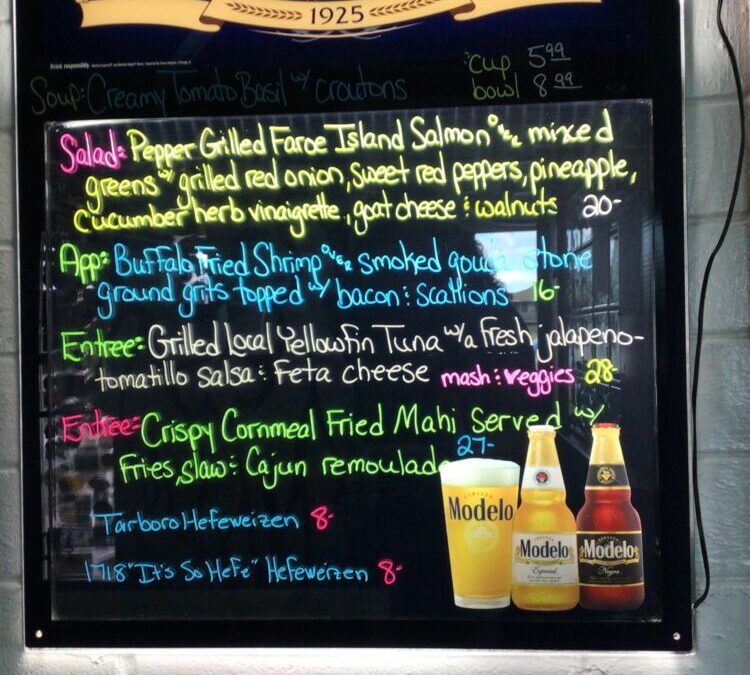 1925
Drink responsibly.
cup 5.99
Soup: Creamy Tomato Basil w/ croutons
bowl 8.99
Salad: Pepper Grilled Faroe Island Salmon over mixed
greens w/ grilled red onion, sweet red peppers, pineapple,
cucumber herb vinaigrette, goat cheese & walnuts 20-
App: Buffalo Fried Shrimp over smoked gouda stone
ground grits topped w/ bacon & scallions 16-
Entree: Grilled Local Yellowfin Tuna w/ a fresh jalapeno-
tomatillo salsa & feta cheese mash & veggies 28-
Entree: Crispy Cornmeal Fried Mahi Served w/
fries, slaw & Cajun remoulade 27-
Tarboro Hefeweizen 8-
1718 "It's So Hefe" Hefeweizen 8-
Modelo
Modelo
Especial
Modelo
Negra